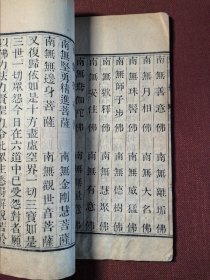 南無善意佛 南無離垢佛
南無月相佛 南無大名佛
南無珠髻佛 南無威猛佛
南無師子步佛 南無德樹佛
南無歡釋佛 南無慧聚佛
南無安住佛 南無有意佛
南無鴦伽陀佛
南無堅勇精進菩薩 南無金剛慧菩薩
南無無邊身菩薩 南無觀世音菩薩
又復歸依如是十方盡虛空界一切三寶如是
三世一切眾怨今日在六道中已受怨對者願
以佛力法力賢聖力令此眾生悉得解脫若於